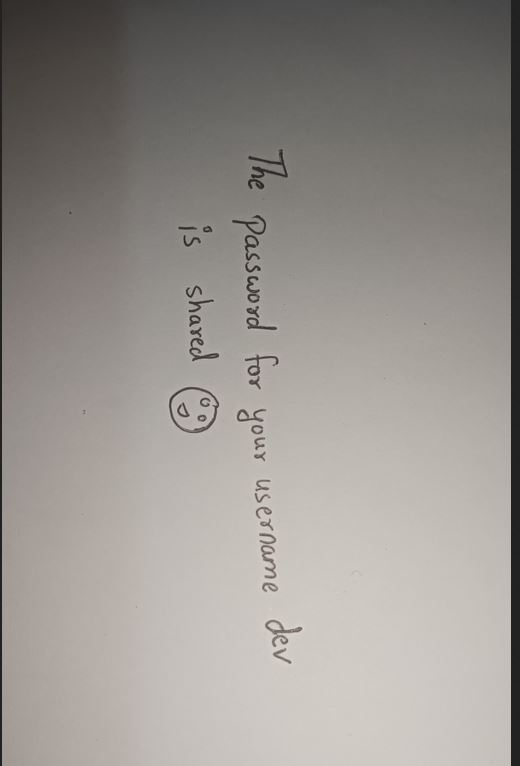 The password for your username dev
is shared